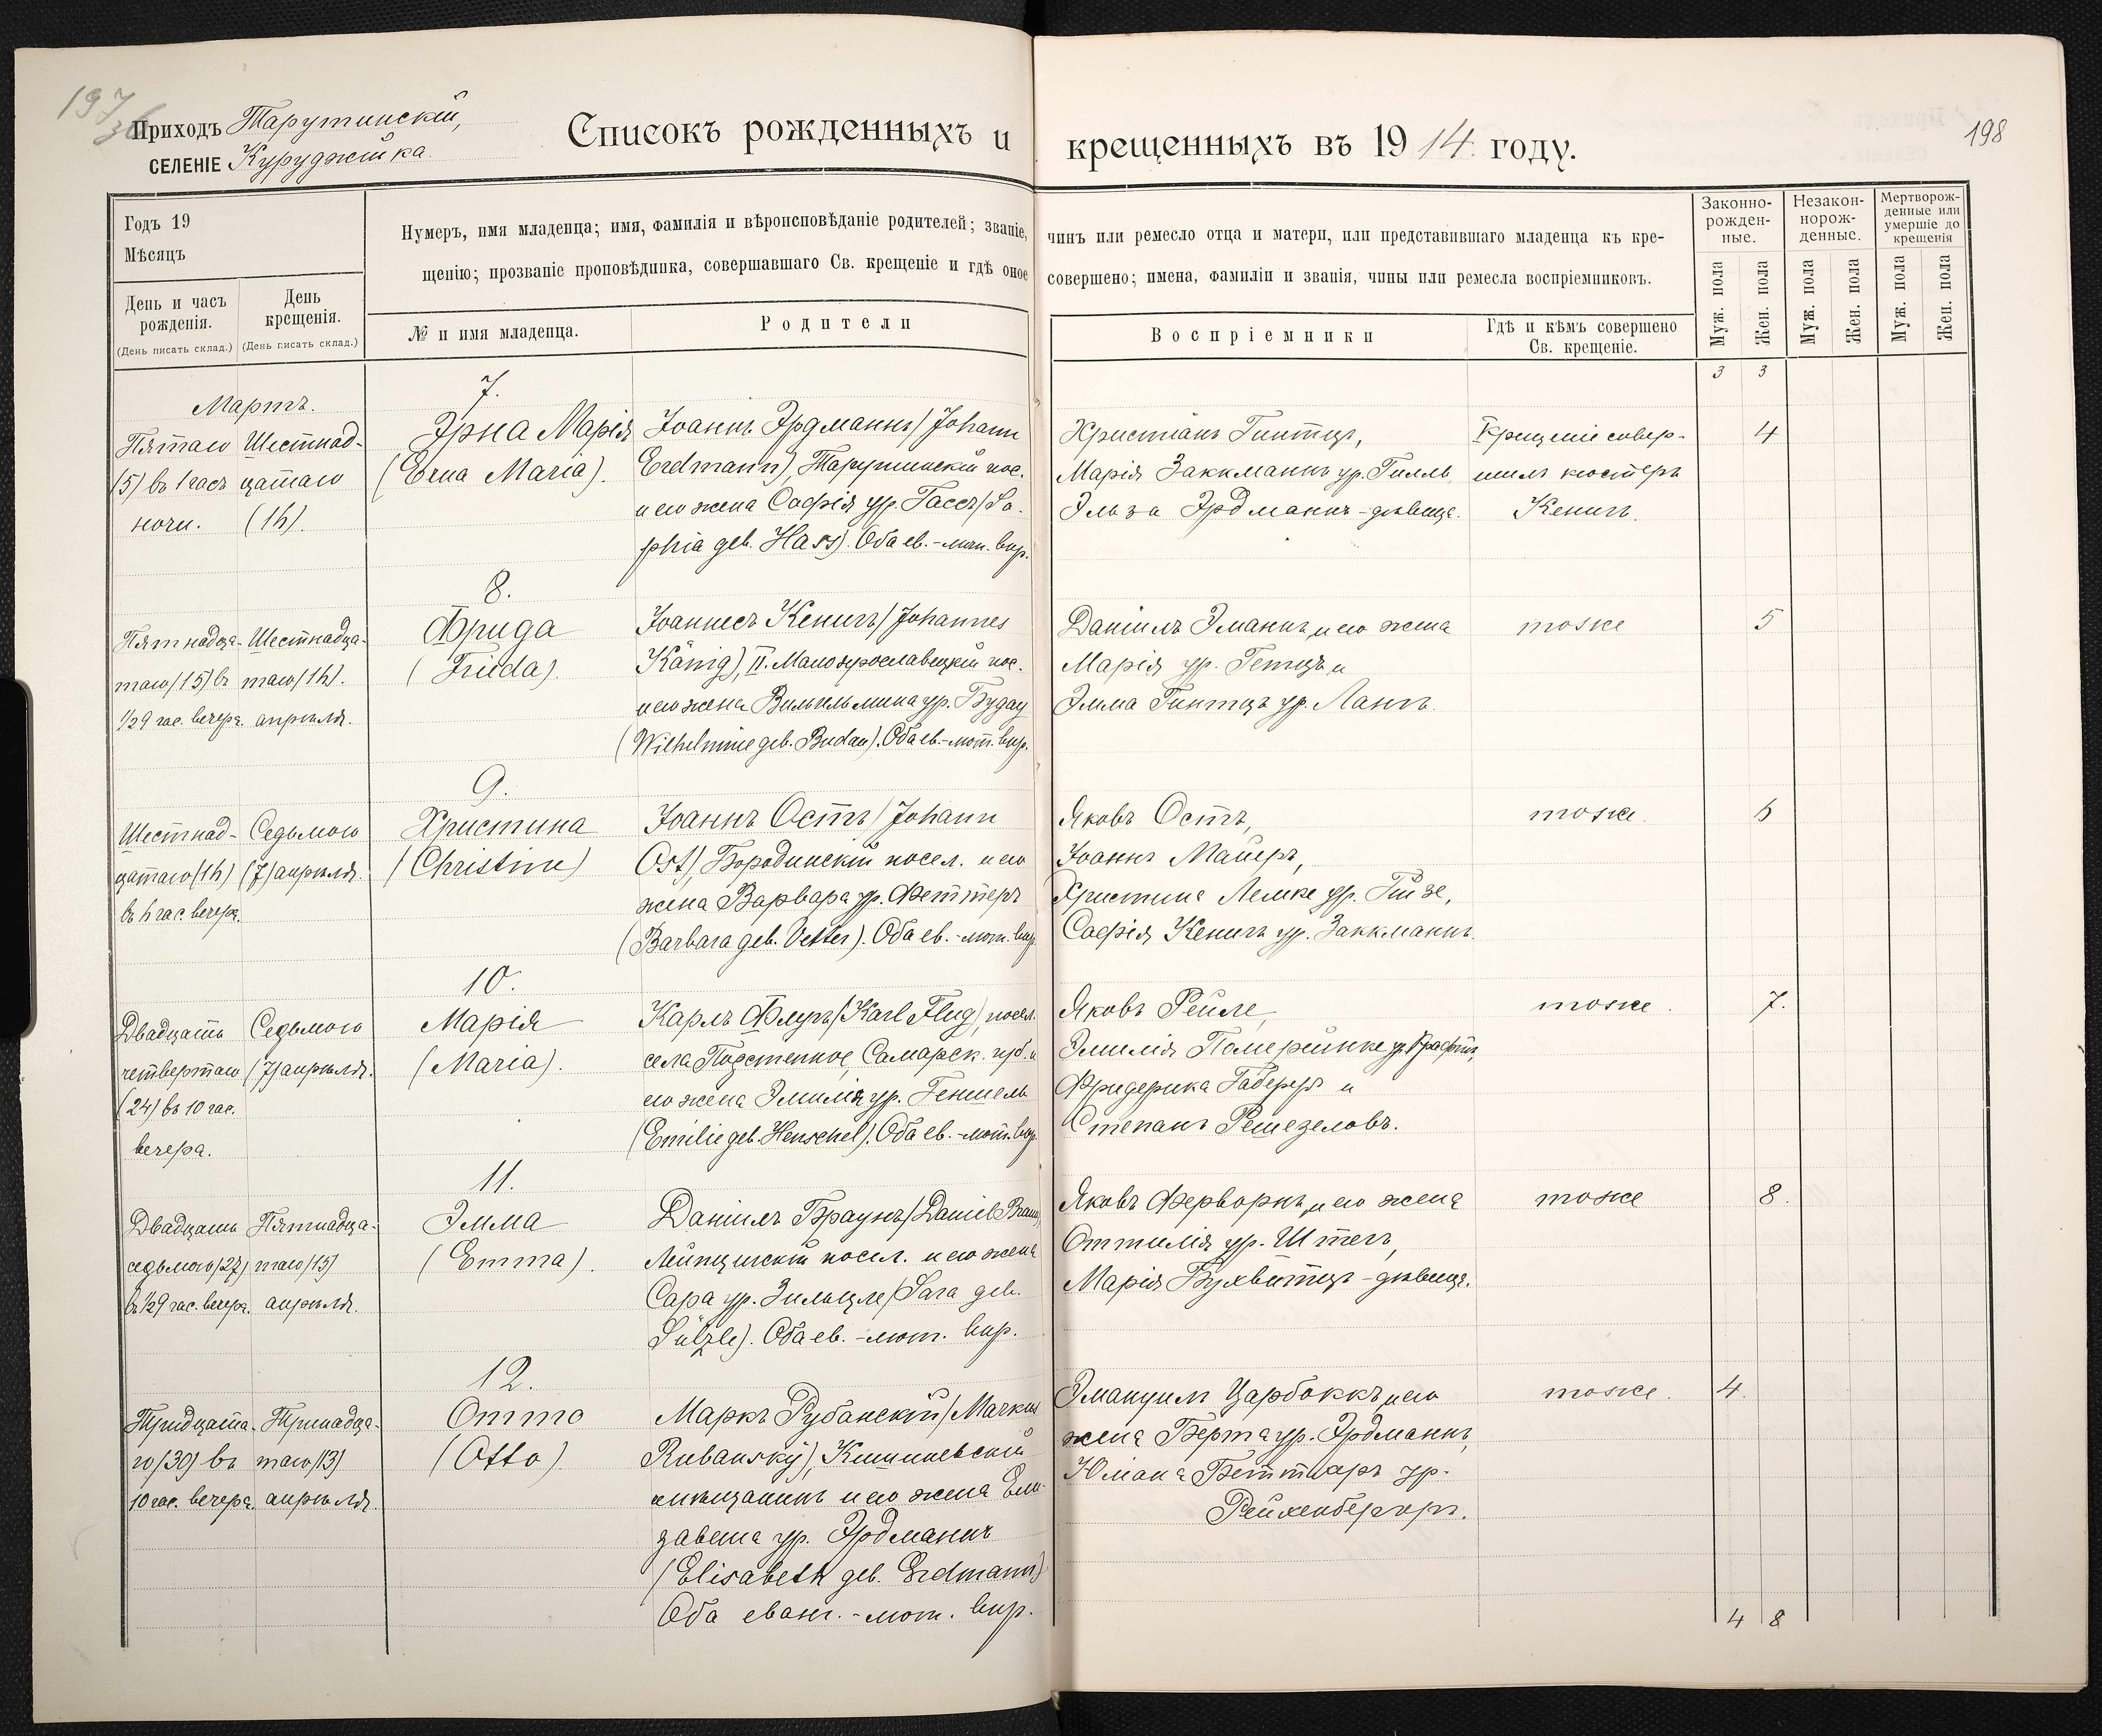 197
198
Приходъ Тарутинскій,
СЕЛЕНІЕ Куруджійка.
Списокъ рожденныхъ и крещенныхъ въ 1914 году.
Годъ 19
Мѣсяцъ
День и часъ рожденія.
(День писать склад.)
День крещенія.
(День писать склад.)
Нумеръ, имя младенца; имя, фамилія и вѣроисповѣданіе родителей; званіе, чинъ или ремесло отца и матери, или представившаго младенца къ кре-
щенію; прозваніе проповѣдника, совершавшаго Св. крещеніе и гдѣ оное совершено; имена, фамиліи и званія, чины или ремесла воспріемниковъ.
№ и имя младенца.
Родители
Воспріемники
Гдѣ и кѣмъ совершено
Св. крещеніе.
Законно-
рожден-
ные.
Незакон-
норож-
денные.
Мертворож-
денные или
умершіе до
крещенія
Муж. пола
Жен. пола
Муж. пола
Жен. пола
Муж. пола
Жен. пола
3 3
Мартъ.
7.
Пятаго
(5) въ 1 часъ
ночи.
Шестнад-
цатаго
(16).
Эрна Марія
(Erna Maria).
Іоаннъ Эрдманнъ (Johann
Erdmann), Тарутинскій пос.
и его жена Софія ур. Гассъ (So-
phia geb. Hass). Оба ев.-лют. вѣр.
Христіанъ Гинтцъ,
Марія Заккманнъ ур. Гилль
Эльза Эрдманнъ - дѣвица.
Крещеніе совер-
шилъ кюстеръ
Кенигъ.
4
8.
Пятнадца-
таго (15) въ
1/2 9 час. вечера.
Шестнадца-
таго (16).
апрѣля.
Фрида
(Frieda).
Іоаннесъ Кенигъ (Johannes
König), II. Малоярославецкій пос.
и его жена Вильгельмина ур. Будау
(Wilhelmine geb. Budau). Оба ев.-лют. вѣр.
Даніилъ Эманнъ, и его жена
Марія ур. Гетцъ и
Эмма Гинтцъ ур. Лангъ.
тоже
5
9.
Шестнад-
цатаго (16)
въ 6 час. вечера.
Седьмого
(7) апрѣля.
Христина
(Christine)
Іоаннъ Остъ (Johann
Ost), Бородинскій посел. и его
жена Варвара ур. Феттеръ
(Barbara geb. Vetter). Оба ев.-лют. вѣр.
Яковъ Остъ,
Іоаннъ Майеръ,
Христина Лемке ур. Гизе,
Софія Кенигъ ур. Заккманнъ.
тоже.
6
10.
Двадцать
четвертаго
(24) въ 10 час.
вечера.
Седьмого
(7) апрѣля.
Марія
(Maria).
Карлъ Флугъ (Karl Flug), посел.
села Подстепное, Самарск. губ. и
его жена Эмилія ур. Геншель
(Emilie geb. Henschel). Оба ев.-лют. вѣр.
Яковъ Рейле,
Эмилія Померейнке ур. Крафтъ,
Фридерика Габереръ и
Степанъ
тоже.
7.
11.
Двадцать
седьмого (27)
въ 1/2 9 час. вечера.
Пятнадца-
таго (15)
апрѣля.
Эмма
(Emma).
Даніилъ Браунъ (Daniel Braun),
Лейпцигскій посел. и его жена
Сара ур. Зильцле (Sara geb.
Sülzle). Оба ев.-лют. вѣр.
Яковъ Ферворнъ, и его жена
Оттилія ур. Штегъ,
Марія Бухвитцъ - дѣвица.
тоже
8.
12.
Тридцата-
го (30) въ
10 час. вечера.
Тринадца-
таго (13)
апрѣля.
Отто
(Otto)
Маркъ Рубанскій (Markus
Rubansky), Кишиневскій
мѣщанинъ и его жена Ели-
завета ур. Эрдманнъ
(Elisabeth geb. Erdmann)
Оба еванг.-лют. вѣр.
Эмануилъ Царбоккъ, и его
жена Берта ур. Эрдманнъ,
Юліана Беттхеръ ур.
Рейхенбергеръ.
тоже.
4.
4 8